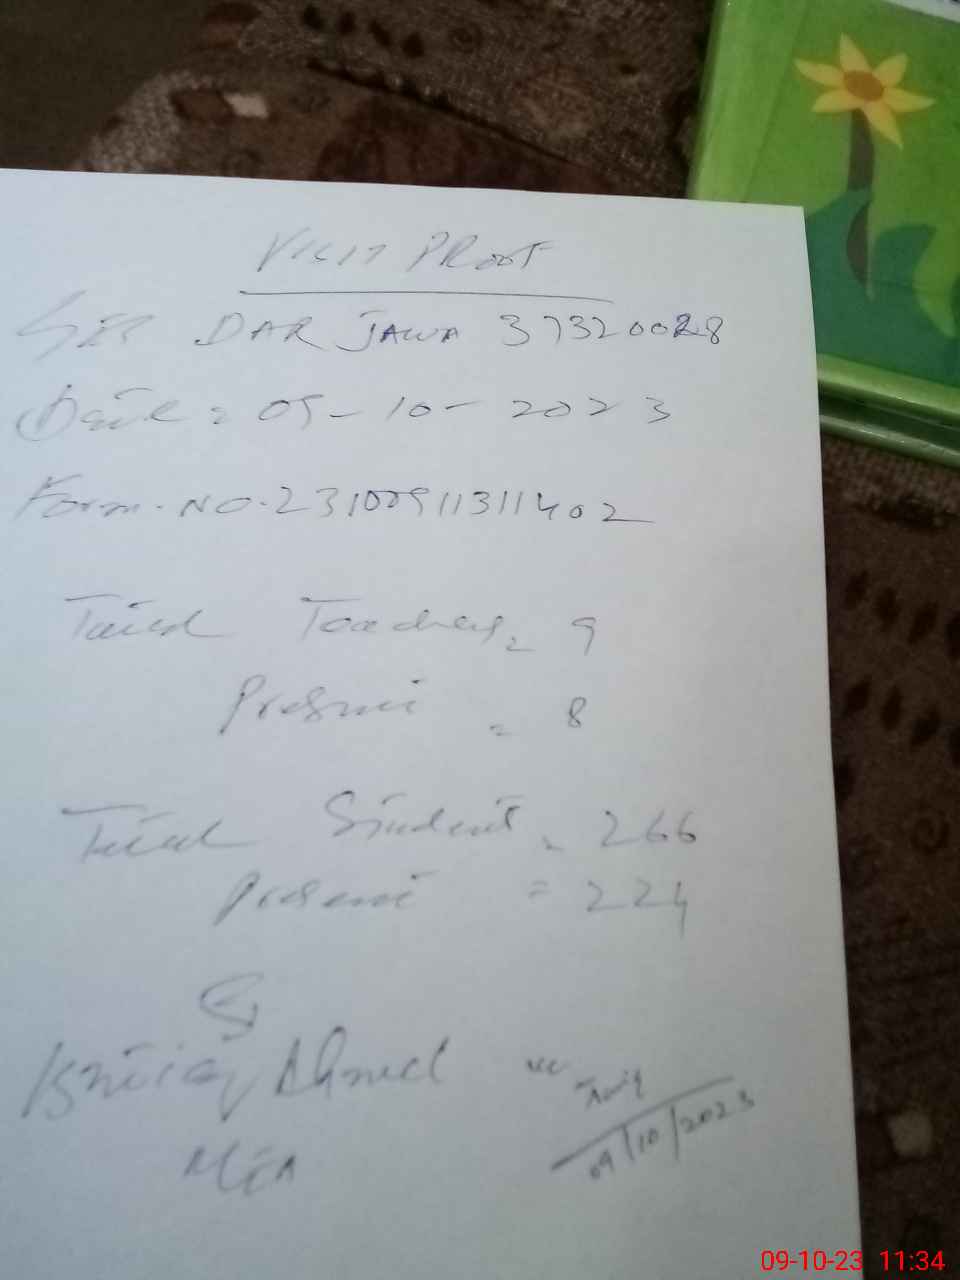 VISIT PROOF
GES DAR JAWA 37320028
Date = 09-10-2023
Form.NO.231009113111402
Total Teachers = 9
Present = 8
Total Student = 266
Present = 224
Ishtiaq Ahmed
MEA
09/10/2023
09-10-23 11:34